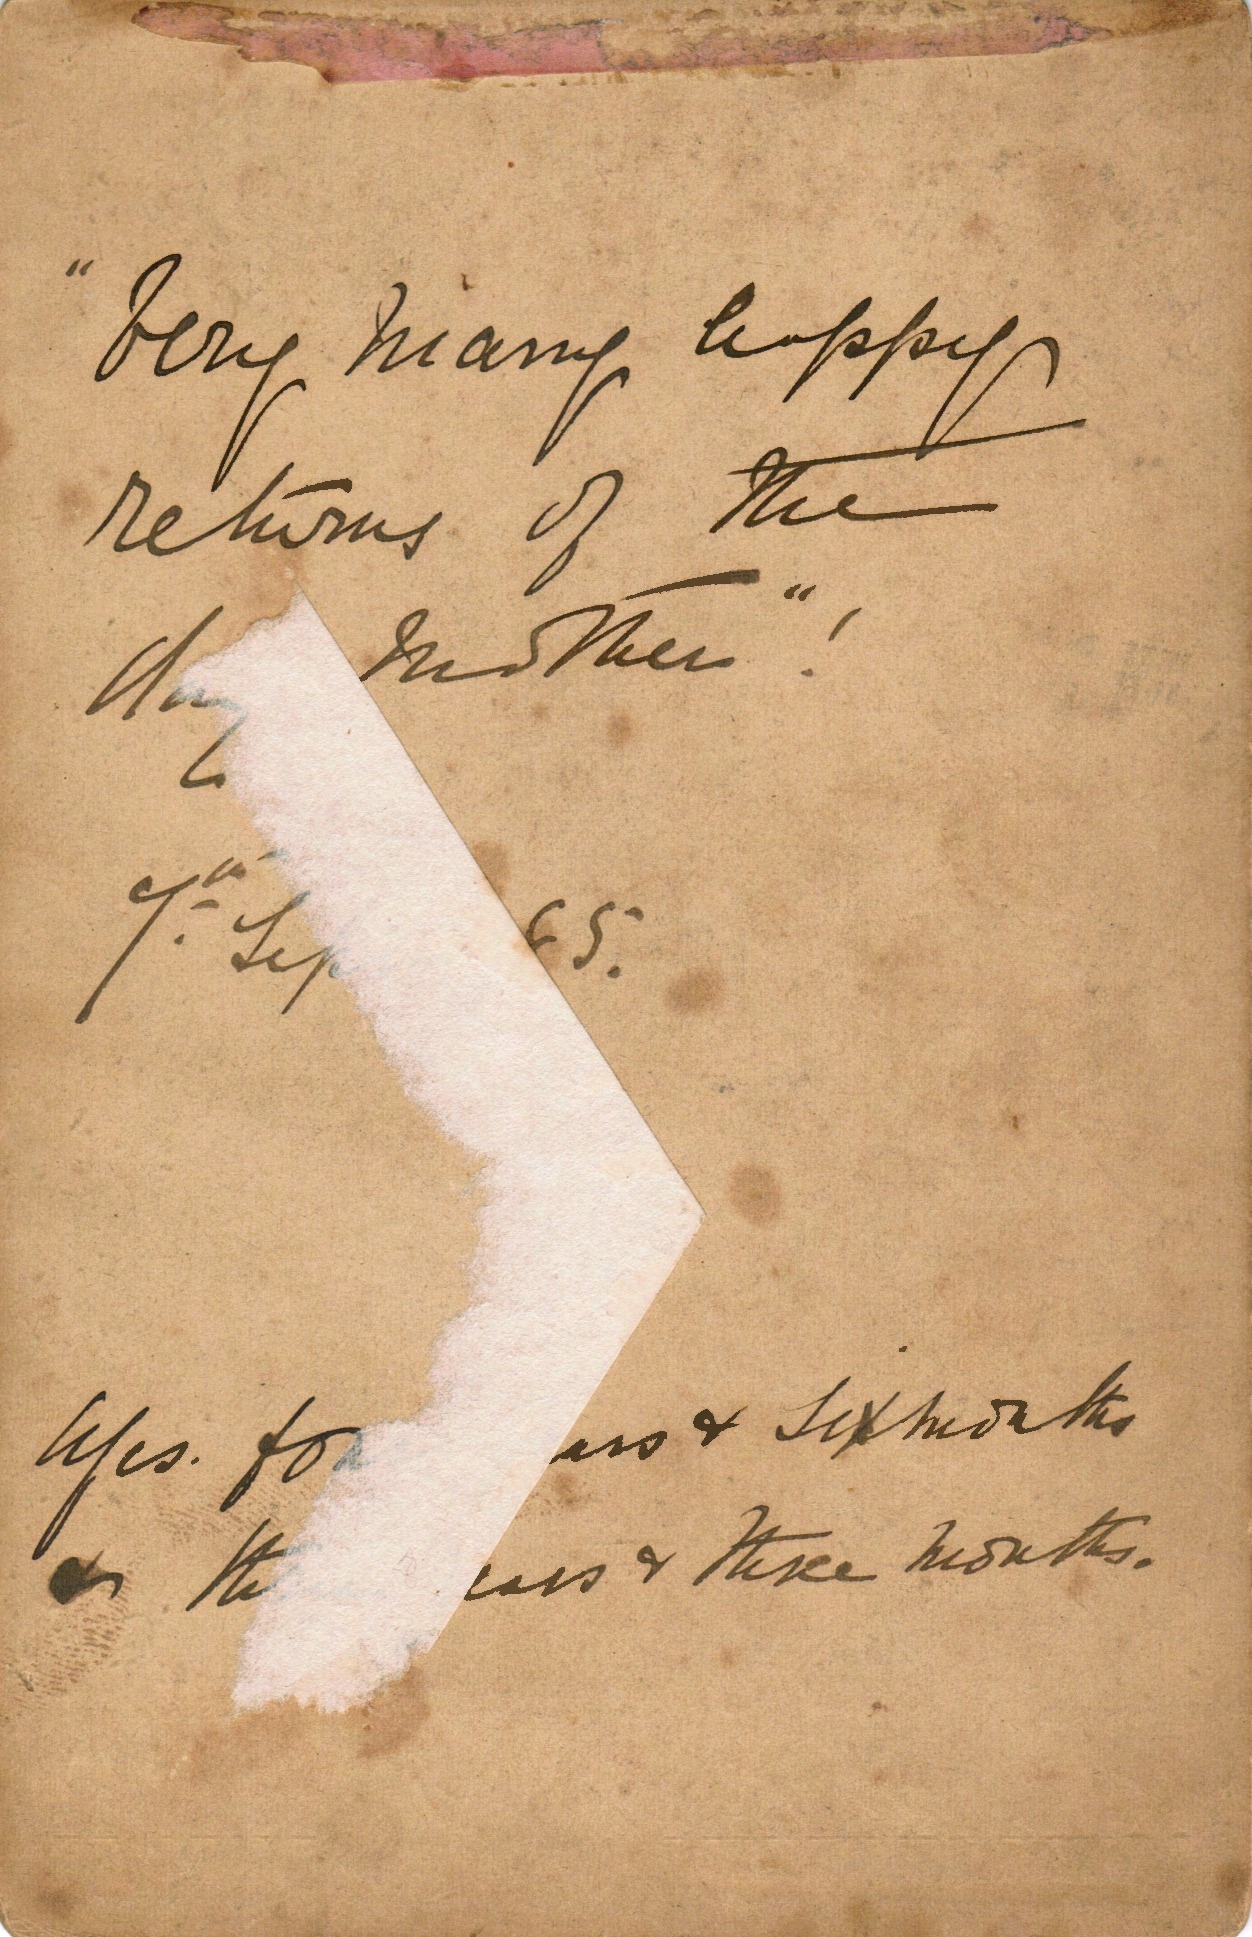 "Very many happy
returns of the
day Mother"!
7th Sep 85.
Ages. fo ars & six months
& th ears & three months.